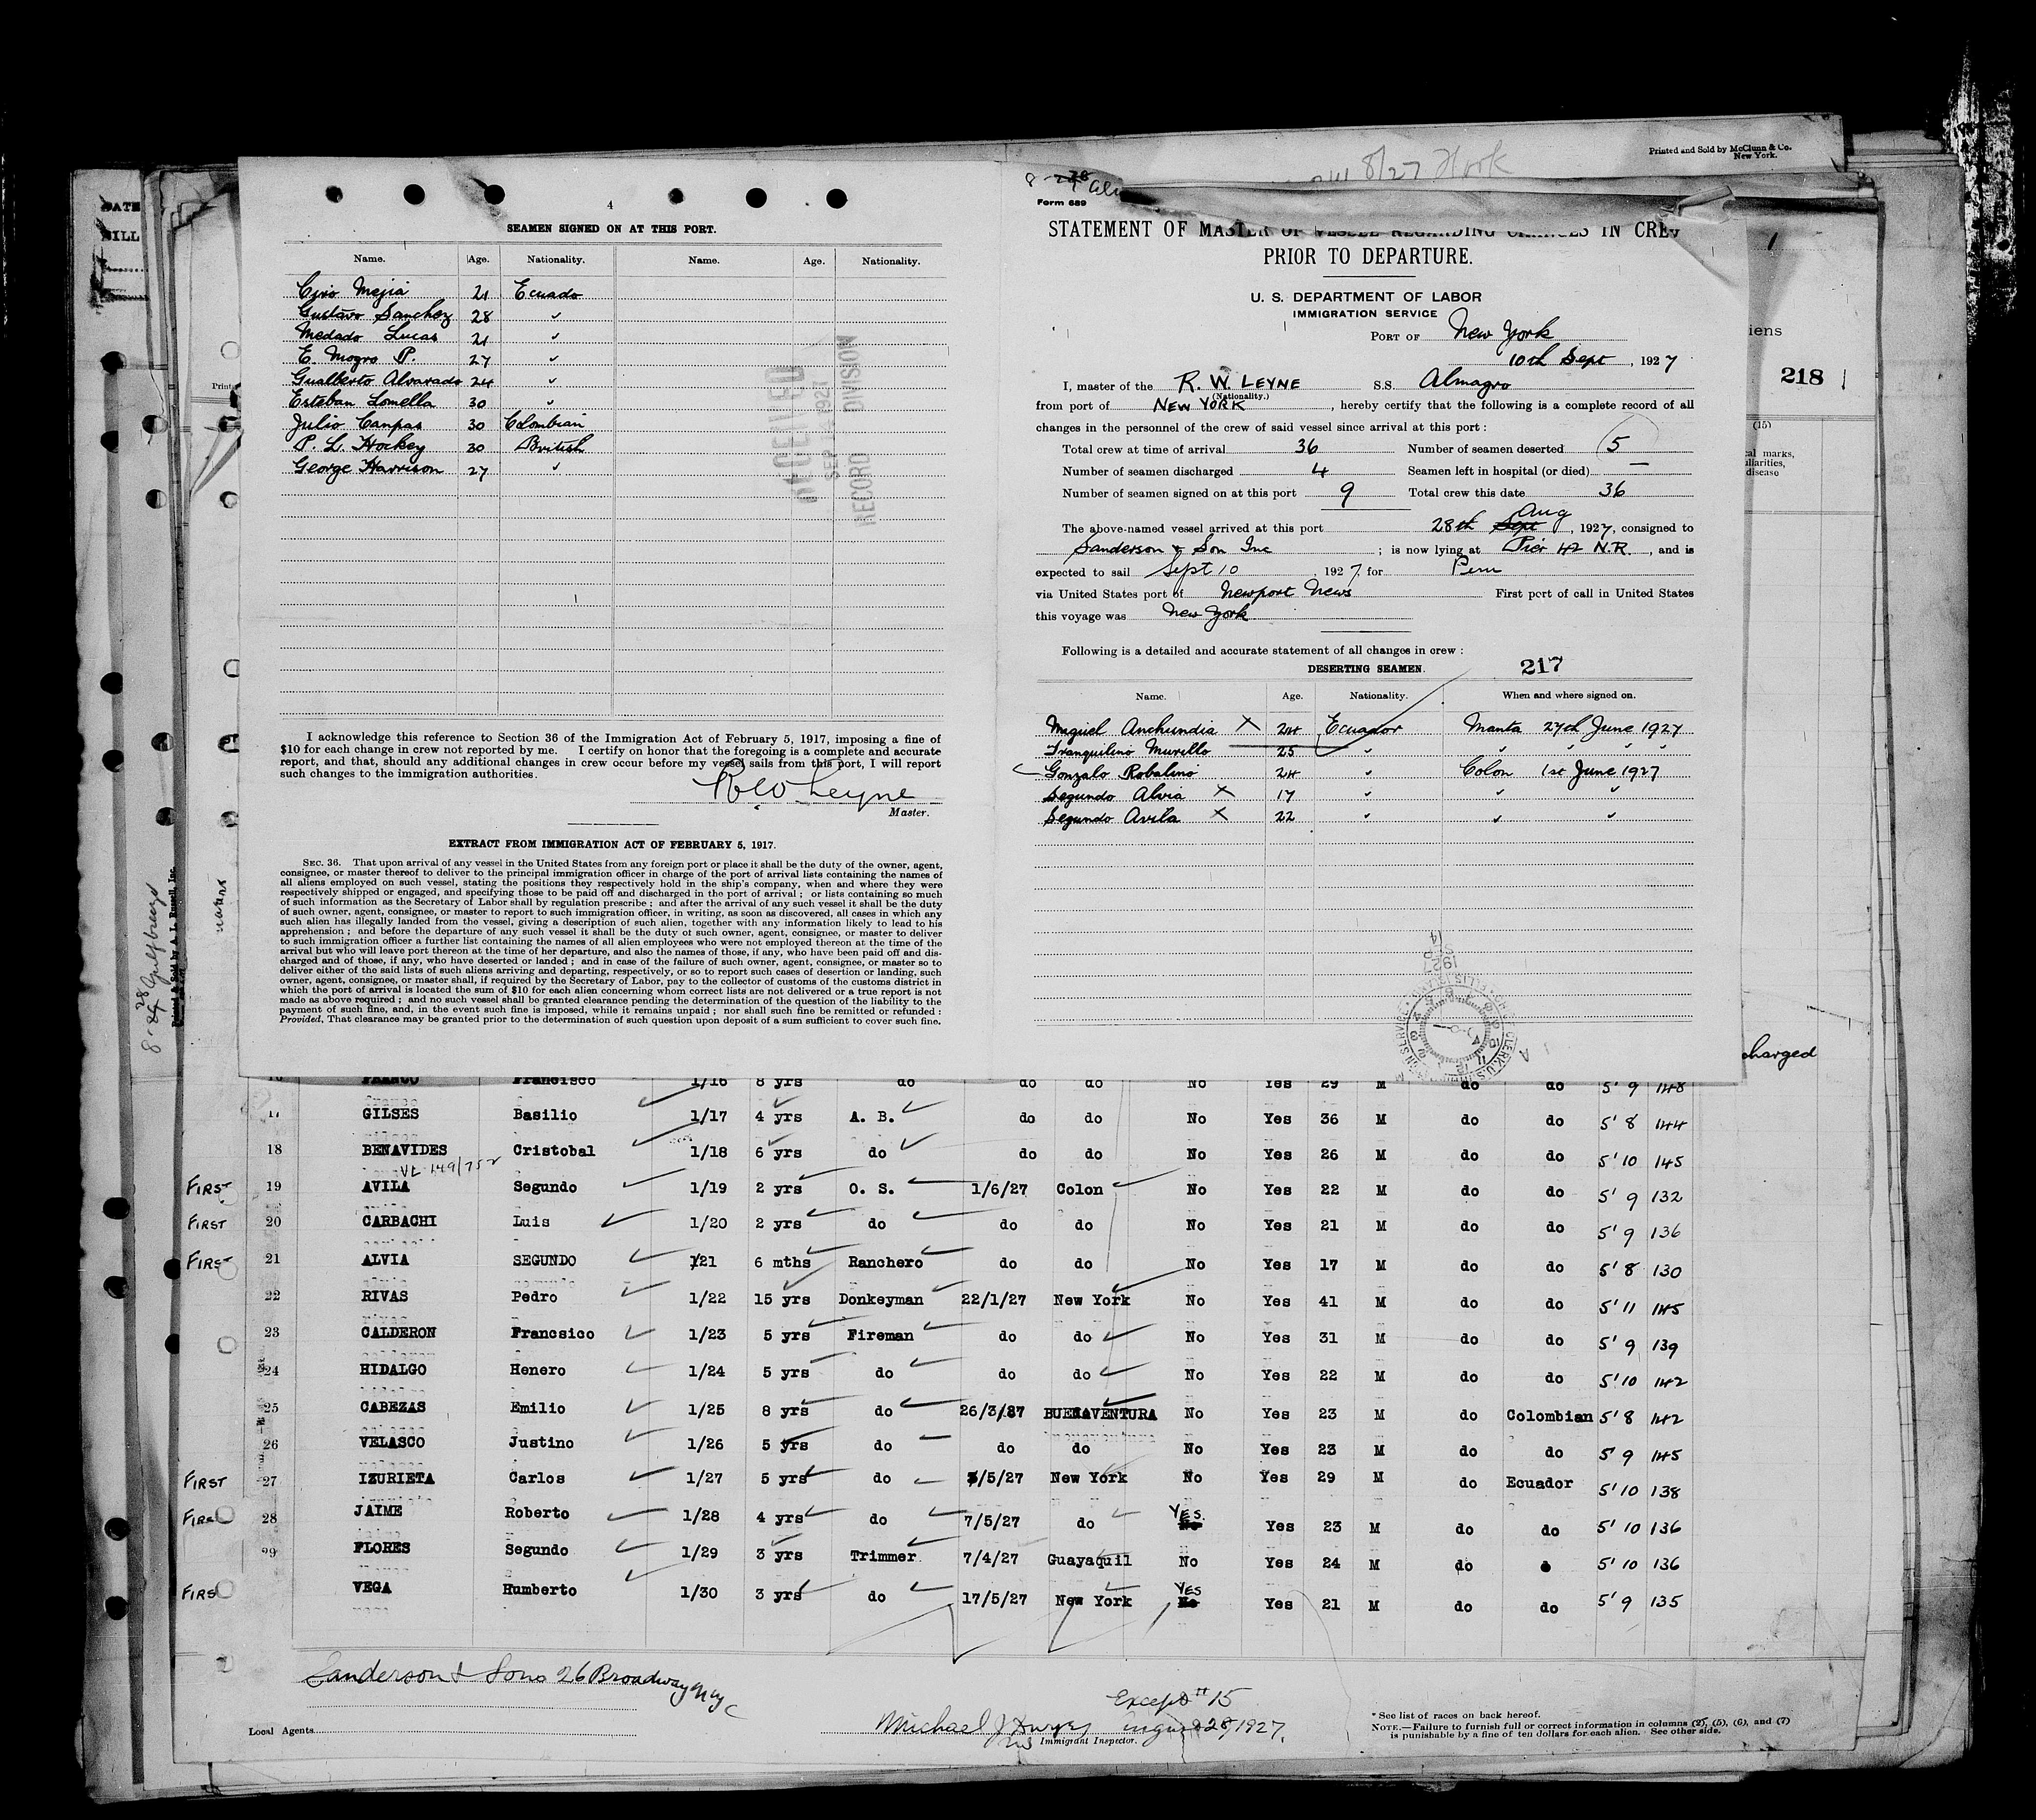 Printed and Sold by McClunn & Co.
New York.
8/27 Hook
4
SEAMEN SIGNED ON AT THIS PORT.
Name. Age. Nationality. Name. Age. Nationality.
Ciro Mejia 21 Ecuado
Gustavo Sanchez 28 "
Medado Lucas 21 "
E. Mogro P. 27 "
Gualberto Alvarado 24 "
Esteban Lomella 30 "
Julio Campas 30 Colombian
P. L. Hockey 30 British
George Harrison 27 "
RECEIVED
SEP 1927
RECORD DIVISION
I acknowledge this reference to Section 36 of the Immigration Act of February 5, 1917, imposing a fine of
$10 for each change in crew not reported by me. I certify on honor that the foregoing is a complete and accurate
report, and that, should any additional changes in crew occur before my vessel sails from this port, I will report
such changes to the immigration authorities.
R W Leyne
Master.
EXTRACT FROM IMMIGRATION ACT OF FEBRUARY 5, 1917.
SEC. 36. That upon arrival of any vessel in the United States from any foreign port or place it shall be the duty of the owner, agent,
consignee, or master thereof to deliver to the principal immigration officer in charge of the port of arrival lists containing the names of
all aliens employed on such vessel, stating the positions they respectively hold in the ship's company, when and where they were
respectively shipped or engaged, and specifying those to be paid off and discharged in the port of arrival ; or lists containing so much
of such information as the Secretary of Labor shall by regulation prescribe ; and after the arrival of any such vessel it shall be the duty
of such owner, agent, consignee, or master to report to such immigration officer, in writing, as soon as discovered, all cases in which any
such alien has illegally landed from the vessel, giving a description of such alien, together with any information likely to lead to his
apprehension ; and before the departure of any such vessel it shall be the duty of such owner, agent, consignee, or master to deliver
to such immigration officer a further list containing the names of all alien employees who were not employed thereon at the time of the
arrival but who will leave port thereon at the time of her departure, and also the names of those, if any, who have been paid off and dis-
charged and of those, if any, who have deserted or landed ; and in case of the failure of such owner, agent, consignee, or master so to
deliver either of the said lists of such aliens arriving and departing, respectively, or so to report such cases of desertion or landing, such
owner, agent, consignee, or master shall, if required by the Secretary of Labor, pay to the collector of customs of the customs district in
which the port of arrival is located the sum of $10 for each alien concerning whom correct lists are not delivered or a true report is not
made as above required ; and no such vessel shall be granted clearance pending the determination of the question of the liability to the
payment of such fine, and, in the event such fine is imposed, while it remains unpaid ; nor shall such fine be remitted or refunded :
Provided, That clearance may be granted prior to the determination of such question upon deposit of a sum sufficient to cover such fine.
Form 689
STATEMENT OF MASTER OF VESSEL REGARDING CHANGES IN CREW
PRIOR TO DEPARTURE.
U. S. DEPARTMENT OF LABOR
IMMIGRATION SERVICE
PORT OF New York
10th Sept , 1927
I, master of the R. W. LEYNE S.S. Almagro
(Nationality.)
from port of NEW YORK , hereby certify that the following is a complete record of all
changes in the personnel of the crew of said vessel since arrival at this port :
Total crew at time of arrival 36 Number of seamen deserted 5
Number of seamen discharged 4 Seamen left in hospital (or died) —
Number of seamen signed on at this port 9 Total crew this date 36
The above-named vessel arrived at this port 28th Sept Aug , 1927, consigned to
Sanderson & Son Inc ; is now lying at Pier 42 N.R. , and is
expected to sail Sept 10 1927, for Peru
via United States port of Newport News First port of call in United States
this voyage was New York
Following is a detailed and accurate statement of all changes in crew :
DESERTING SEAMEN. 217
Name. Age. Nationality. When and where signed on.
Migiel Anchundia X 24 Ecuador Manta 27th June 1927
Tranquilino Murillo 25 " " " " "
Gonzalo Robalino 24 " Colon 1st June 1927
Segundo Alvia X 17 " " "
Segundo Avila X 22 " " "
218
iens
(15)
al marks,
uliarities,
disease
charged
16 FRANCO Francisco 1/16 8 yrs do do do No Yes 29 M do do 5' 9 148
17 GILSES Basilio 1/17 4 yrs A. B. do do No Yes 36 M do do 5' 8 144
18 BENAVIDES Cristobal 1/18 6 yrs do do do No Yes 26 M do do 5' 10 145
FIRST 19 AVILA Segundo 1/19 2 yrs O. S. 1/6/27 Colon No Yes 22 M do do 5' 9 132
FIRST 20 CARBACHI Luis 1/20 2 yrs do do do No Yes 21 M do do 5' 9 136
FIRST 21 ALVIA SEGUNDO 1/21 6 mths Ranchero do do No Yes 17 M do do 5' 8 130
22 RIVAS Pedro 1/22 15 yrs Donkeyman 22/1/27 New York No Yes 41 M do do 5' 11 145
23 CALDERON Francsico 1/23 5 yrs Fireman do do No Yes 31 M do do 5' 9 139
24 HIDALGO Henero 1/24 5 yrs do do do No Yes 22 M do do 5' 10 142
25 CABEZAS Emilio 1/25 8 yrs do 26/3/27 BUENAVENTURA No Yes 23 M do Colombian 5' 8 142
26 VELASCO Justino 1/26 5 yrs do do do No Yes 23 M do do 5' 9 145
FIRST 27 IZURIETA Carlos 1/27 5 yrs do 3/5/27 New York No Yes 29 M do Ecuador 5' 10 138
FIRS 28 JAIME Roberto 1/28 4 yrs do 7/5/27 do YES Yes 23 M do do 5' 10 136
29 FLORES Segundo 1/29 3 yrs Trimmer 7/4/27 Guayaquil No Yes 24 M do 5' 10 136
FIRS VEGA Humberto 1/30 3 yrs do 17/5/27 New York YES Yes 21 M do do 5' 9 135
Sanderson & Sons 26 Broadway NYC
Local Agents
Except # 15
August 28, 1927.
Michael J Dwyer
Immigrant Inspector.
* See list of races on back hereof.
NOTE.—Failure to furnish full or correct information in columns (2), (5), (6), and (7)
is punishable by a fine of ten dollars for each alien. See other side.